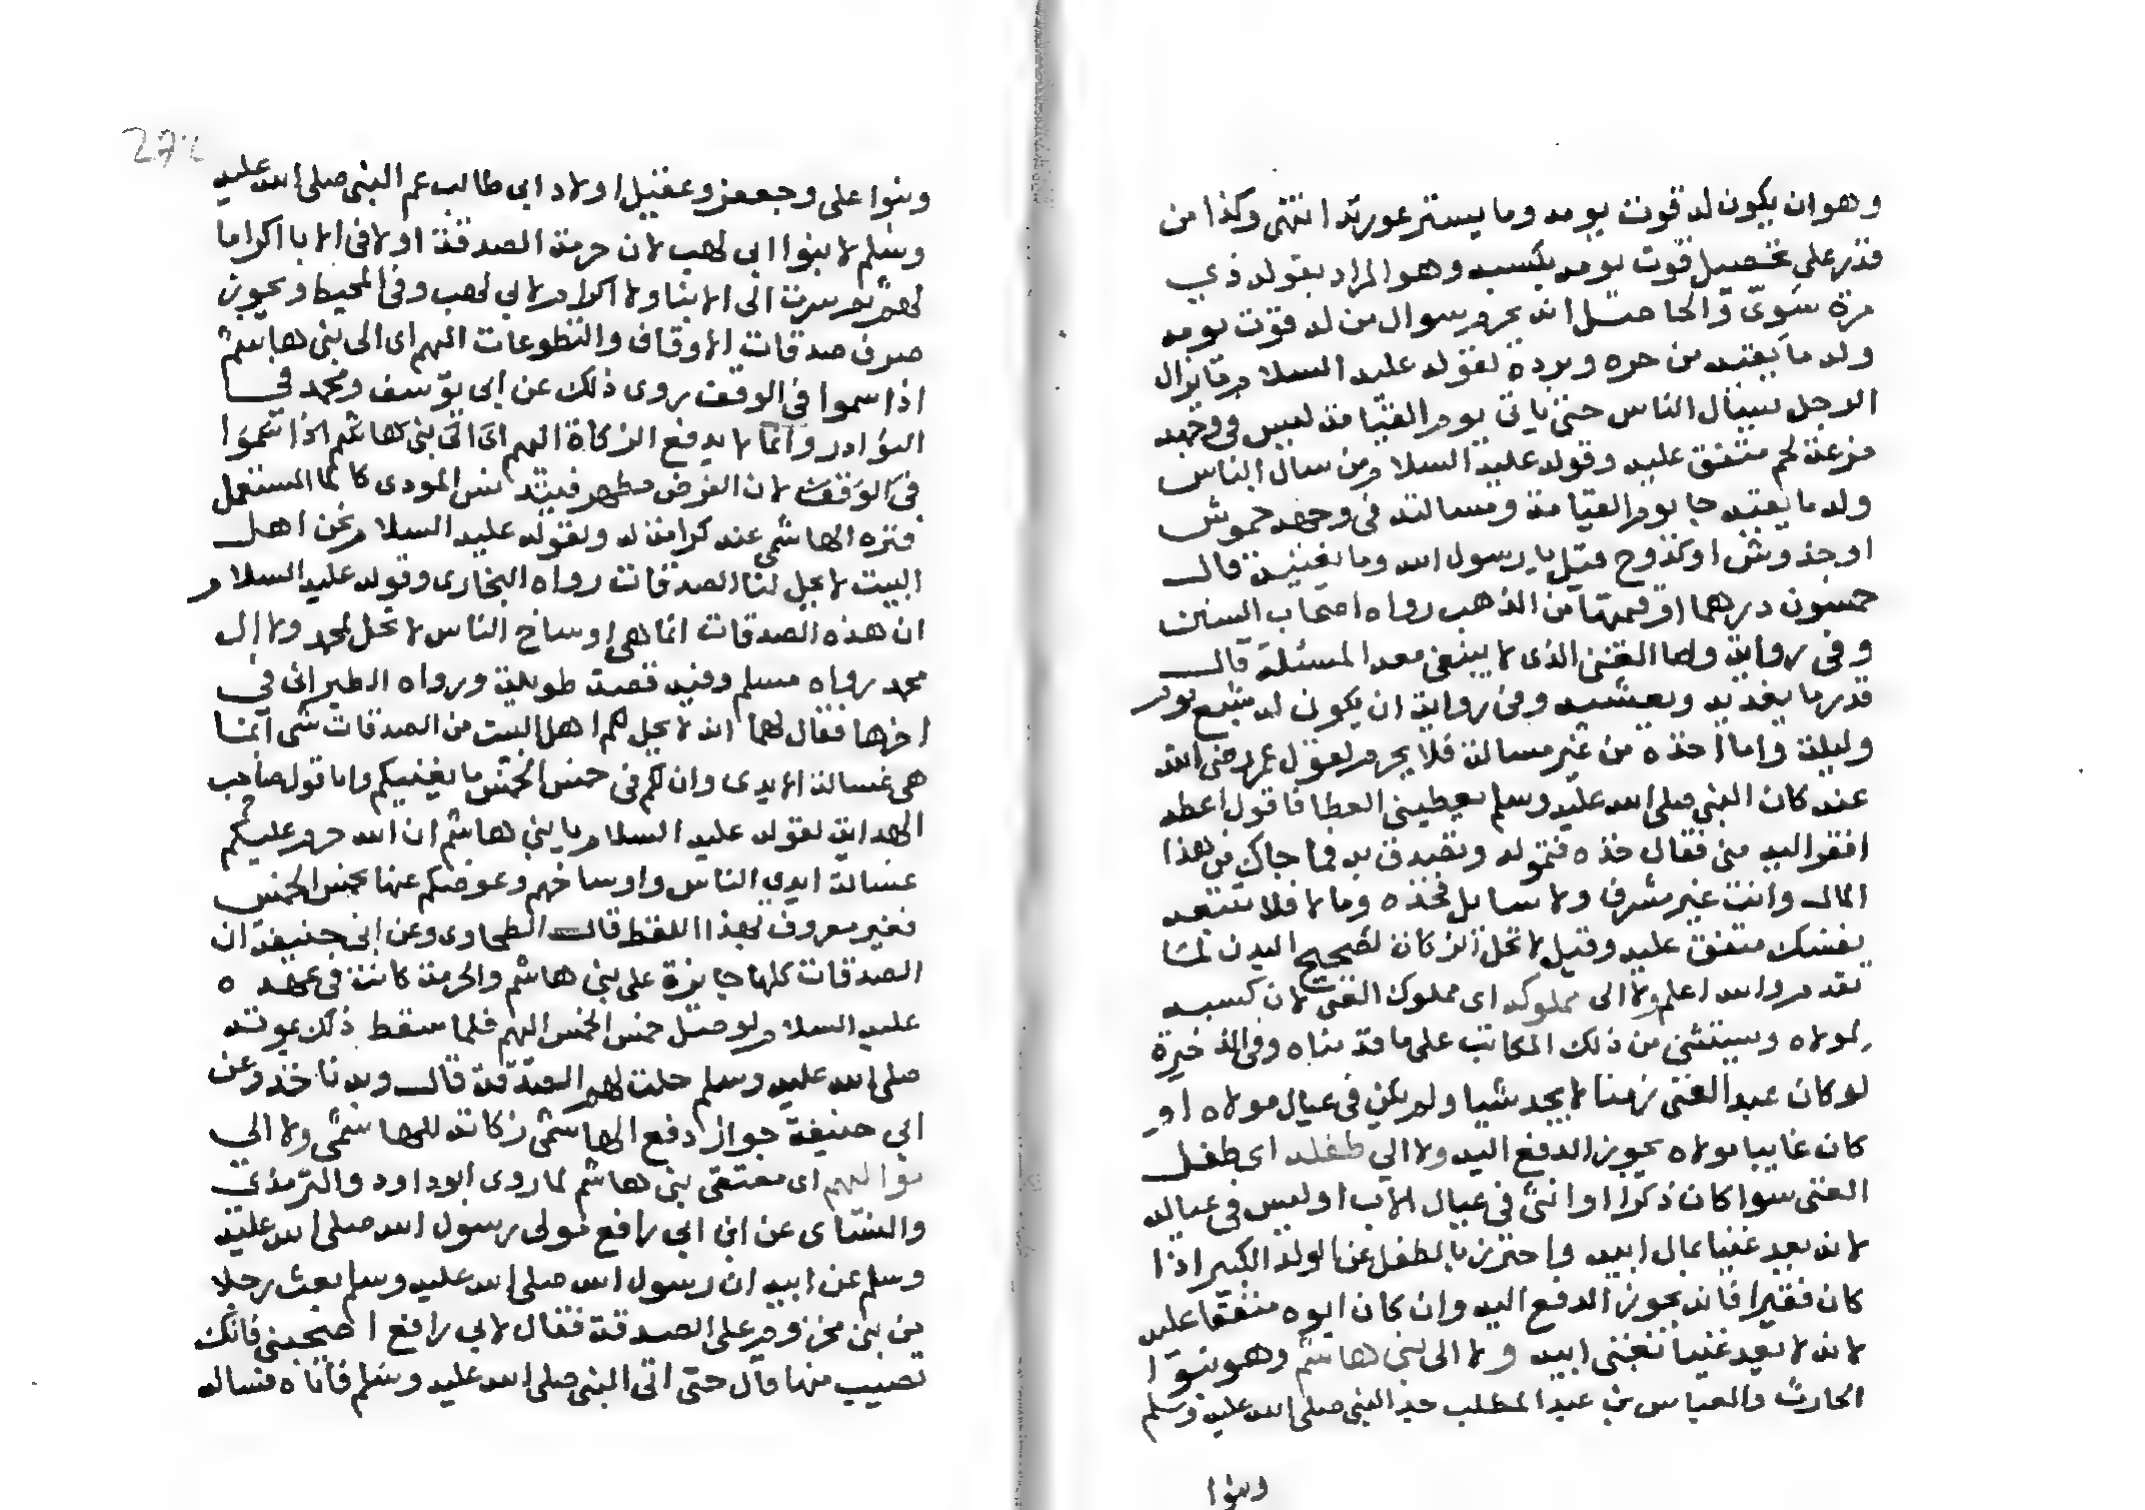 وهوان يكون له قوت يومه وما يستر عورته انتهى وكذا من
قدر على تحصيل قوت يومه بكسبه وهو المراد بقوله ذي
مرة سوى والحاصل انه يحرم سوال من له قوت يومه
وله ما يقيه من حره وبرده لقوله عليه السلام ما يزال
الرجل يسال الناس حتى ياتى يوم القيامة ليس في وجهه
مزعة لحم متفق عليه وقوله عليه السلام من سال الناس
وله ما يغنيه جا يوم القيامة ومسالته في وجهه خموش
او خدوش او كدوح قيل يا رسول الله وما يغنيه قال
خمسون درهما او قيمتها من الذهب رواه اصحاب السنن
وفى رواية وما الغنى الذى لا ينبغى معه المسئلة قال
قدر ما يغديه ويعشيه وفى رواية ان يكون له شبع يوم
وليلة واما اخذه من غير مسالة فلا يحرم لقول عمر رضى الله
عنه كان النبي صلى الله عليه وسلم يعطينى العطا فاقول اعطه
افقر اليه منى فقال خذه فتموله وتصدق به فما جاك من هذا
المال وانت غير مشرف ولا سايل فخذه وما لا فلا تتبعه
نفسك متفق عليه وقيل لا تحل الزكاة لصحيح البدن لما
تقدم والله اعلم ولا الى مملوكه اى مملوك الغنى لان كسبه
لمولاه ويستثنى من ذلك المكاتب على ما قدمناه وفى الذخيرة
لو كان عبد الغنى زمنا لا يجد شيا ولم يكن فى عيال مولاه او
كان غايبا مولاه يجوز الدفع اليه ولا الي طفله اى طفل
الغنى سوا كان ذكرا او انثى فى عيال الاب او ليس فى عياله
لانه يعد غنيا بمال ابيه واحترز بالطفل عن الولد الكبير اذا
كان فقيرا فانه يجوز الدفع اليه وان كان ابوه منفقا عليه
لانه لا يعد غنيا بغنى ابيه ولا الى بنى هاشم وهو بنوا
الحارث والعباس بن عبد المطلب جد النبي صلى الله عليه وسلم
وبنوا
وبنوا على وجعفر وعقيل اولاد ابى طالب عم النبى صلى الله عليه
وسلم لا بنوا ابى لهب لان حرمة الصدقة اولا فى الابا اكراما
لهم ثم سرت الى الابنا ولا اكرام لابي لهب وفى المحيط ويجوز
صرف صدقات الاوقاف والتطوعات اليهم اى الى بنى هاشم
اذا سموا فى الوقف روى ذلك عن ابى يوسف ومحمد فى
النوادر وانما لا يدفع الزكاة اليهم اى الى بنى هاشم اذا سموا
فى الوقف لان الفرض مطهر فيتدنس المودى كالما المستعمل
فتنزه الهاشمى عنه كرامة له ولقوله عليه السلام نحن اهل
البيت لا يحل لنا الصدقات رواه البخارى وقوله عليه السلام
ان هذه الصدقات انما هى اوساخ الناس لا تحل لمحمد ولا ال
محمد رواه مسلم وفيه قصة طويلة ورواه الطبرانى فى
اخرها فقال لهما انه لا يحل لكم اهل البيت من الصدقات شى انما
هى غسالة الايدى وان لكم فى خمس الخمس ما يغنيكم واما قول صاحب
الهداية لقوله عليه السلام يا بنى هاشم ان الله حرم عليكم
غسالة ايدى الناس واوساخهم وعوضكم عنها بخمس الخمس
فغير معروف بهذا اللفظ قال الطحاوى وعن ابى حنيفة ان
الصدقات كلها جايزة على بنى هاشم والحرمة كانت فى عهده
عليه السلام لوصول خمس الخمس اليهم فلما سقط ذلك بموته
صلى الله عليه وسلم حلت لهم الصدقة قال وبه ناخذ وعن
ابى حنيفة جواز دفع الهاشمى زكاته للهاشمى ولا الى
مواليهم اى معتقى بنى هاشم لما روى ابو داود والترمذى
والنساى عن ابن ابى رافع مولى رسول الله صلى الله عليه
وسلم عن ابيه ان رسول الله صلى الله عليه وسلم بعث رجلا
من بنى مخزوم على الصدقة فقال لابى رافع اصحبنى فانك
تصيب منها قال حتى اتى النبى صلى الله عليه وسلم فاتاه فساله